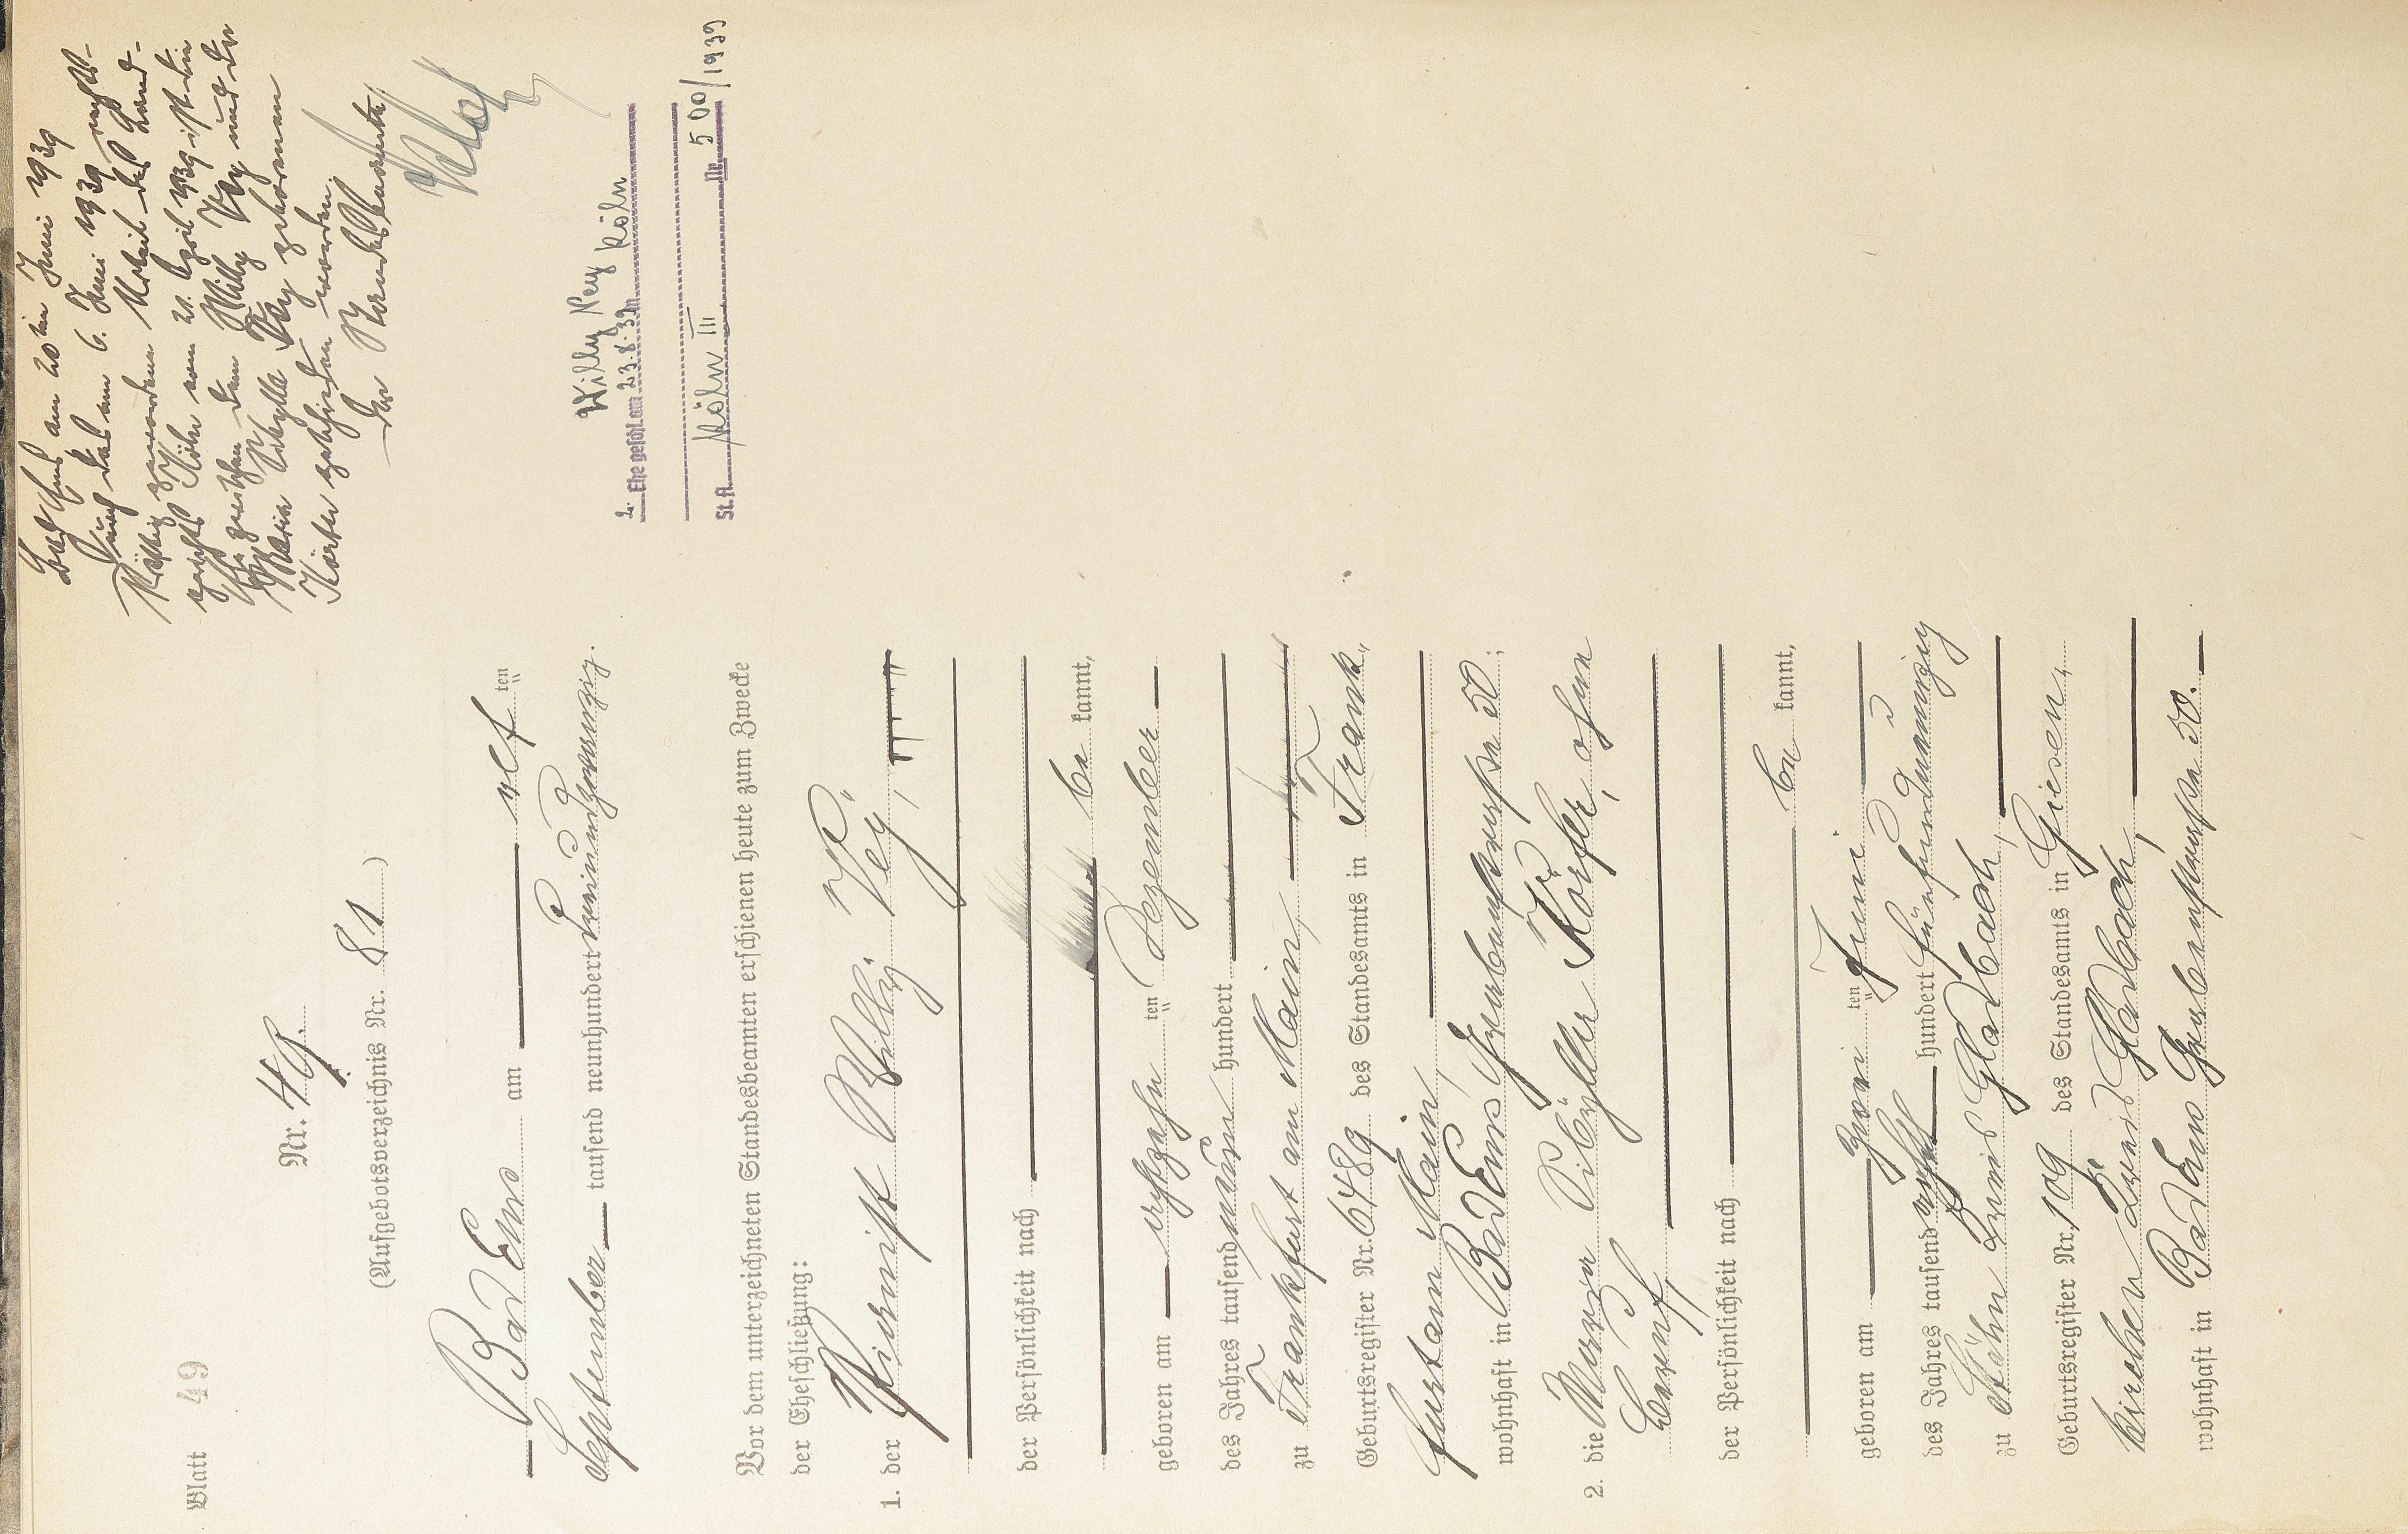 Blatt 49
Nr. 49.
(Aufgebotsverzeichnis Nr. 81)
Bad Ems am elf ten
September tausend neunhundert dreiundzwanzig.
Vor dem unterzeichneten Standesbeamten erschienen heute zum Zwecke
der Eheschließung:
1. der Pianist Willy Ney,
der Persönlichkeit nach
be kannt,
geboren am achtzehn ten Dezember
des Jahres tausend neun hundert
zu Frankfurt am Main,
Geburtsregister Nr. 6489 des Standesamts in Frank-
furt am Main,
wohnhaft in Bad Ems, Grabenstraße 50;
2. die Maria Sibylla Körfer, ohne
Beruf,
der Persönlichkeit nach
be kannt,
geboren am zwei ten Juni
des Jahres tausend acht hundert fünfundneunzig
zu Köln Kreis Gladbach,
Geburtsregister Nr. 109 des Standesamts in Giesen-
kirchen Kreis Gladbach,
wohnhaft in Bad Ems Grabenstraße 50.
Bad Ems, am 20ten Juni 1939
Durch das am 6. Juni 1939 rechts-
kräftig gewordene Urteil des Land-
gerichts Köln vom 21. April 1939 ist die
Ehe zwischen dem Willy Ney und der
Maria Sibylla Ney geborenen
Körfer geschieden worden.
Der Standesbeamte
Willy Ney Köln
2. Ehe geschl. am 23.8.39 in
St.A. Köln III Nr. 500/1939